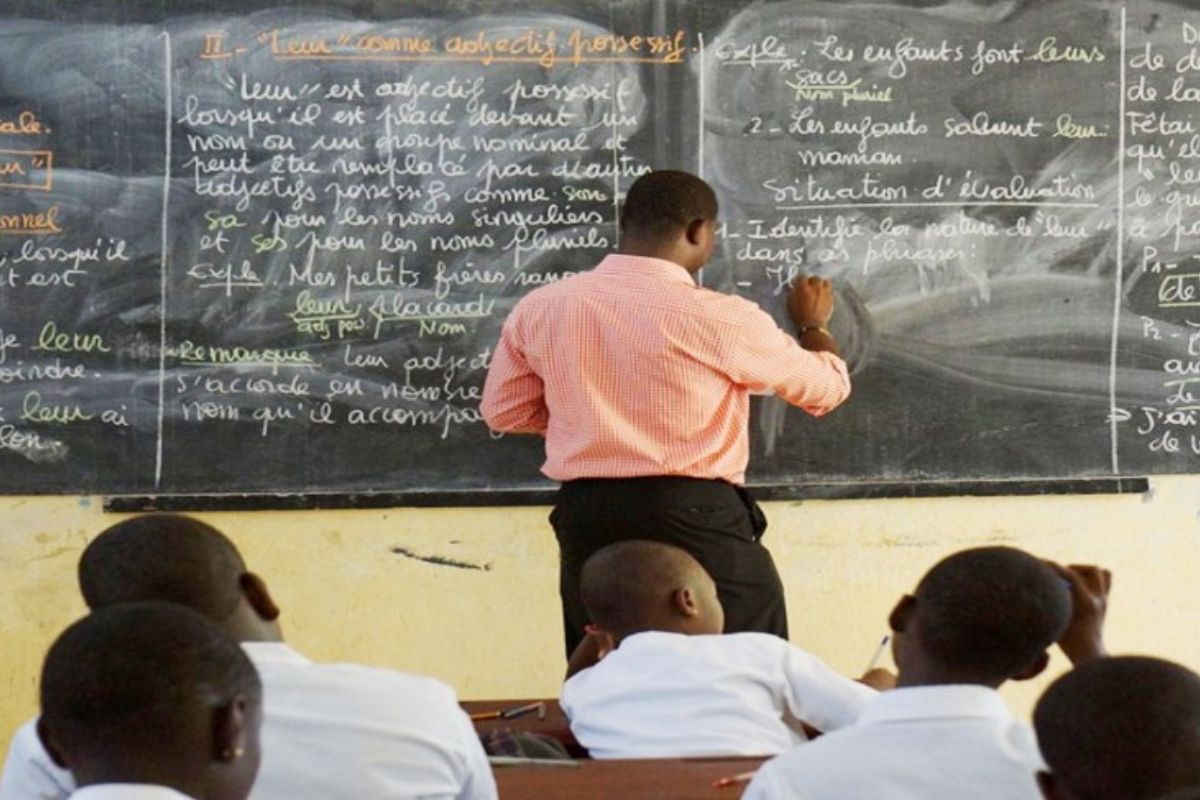 iale.
un"
onnel
, lorsqu'il
t est
e leur
oindre.
leur ai
lon.
II - "Leur" comme adjectif possessif.
"leur" est adjectif possessif
lorsqu'il est placé devant un
nom ou un groupe nominal et
peut être remplacé par d'autres
adjectifs possessifs comme son
sa pour les noms singuliers
et ses pour les noms pluriels.
Exple. Mes petits frères
leur placard
adj pos Nom
Remarque leur adject
s'accorde en nombre
nom qu'il accompa
Exple. Les enfants font leurs
sacs
Nom pluriel
2 - Les enfants saluent leur
maman.
Situation d'évaluation
1 - Identifie la nature de "leur"
dans ces phrases:
- Il
D
de de
de la
l'étai
qu'el
"le
le qu
à po
P1 -
de
P2 -
au
de
J'ai
de v